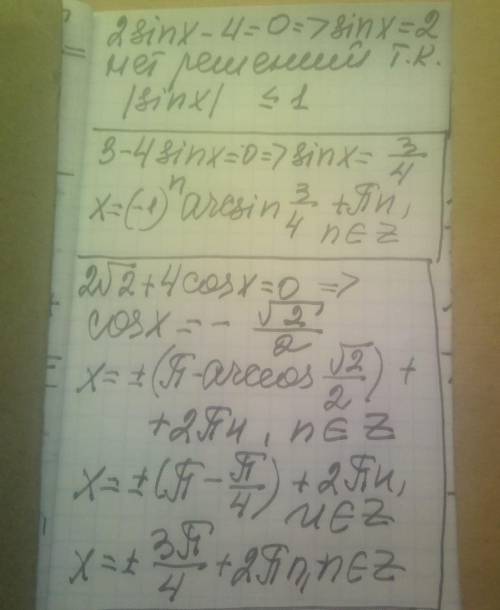 2sinx-4=0=>sinx=2
нет решений т.к.
|sinx| ≤1
3-4sinx=0=>sinx= 3/4
x=(-1)ⁿ arcsin 3/4 +πn,
n∈Z
2√2+4cosx=0 =>
cosx=- √2/2
x=±(π-arccos √2/2) +
+2πn, n∈Z
x=±(π-π/4)+2πn,
n∈Z
x=± 3π/4 +2πn, n∈Z